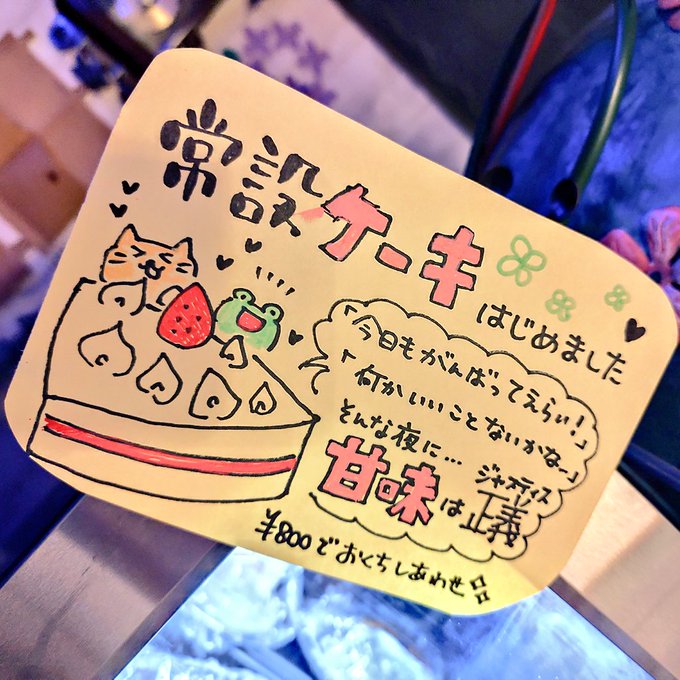 常設ケーキはじめました
「今日もがんばってえらい!」
「何かいいことないかなー」
そんな夜に…
ジャスティス
甘味は正義
¥800でおくちしあわせ